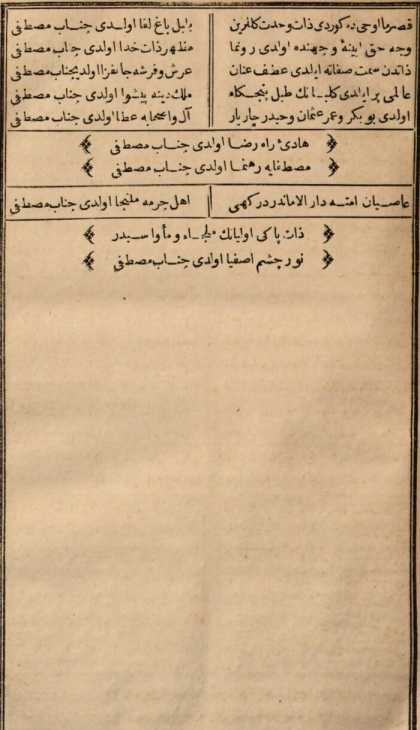 قصر ما اوحی ده کوردی ذات وحدت کلفزین بلبل باغ لقا اولدی جناب مصطفی
وجه حق ایینهٔ وجهنده اولدی رونما مظهر ذات خدا اولدی جناب مصطفی
ذاتدن سمت صفاته ایلدی عطف عنان عرش و فرشه جانفزا اولدی جناب مصطفی
عالمی پر ایلدی کلبانك طبل پنجکاه ملك دینه پیشوا اولدی جناب مصطفی
اولدی بو بکر و عمر عثمان و حیدر چاریار آل و اصحابه عطا اولدی جناب مصطفی
هادیٔ راه رضا اولدی جناب مصطفی
مصطفایه رهنما اولدی جناب مصطفی
عاصیان امته دار الاماندر درکهی اهل جرمه ملتجا اولدی جناب مصطفی
ذات پاکی اولیانك ملجاء و مأواسیدر
نور چشم اصفیا اولدی جناب مصطفی